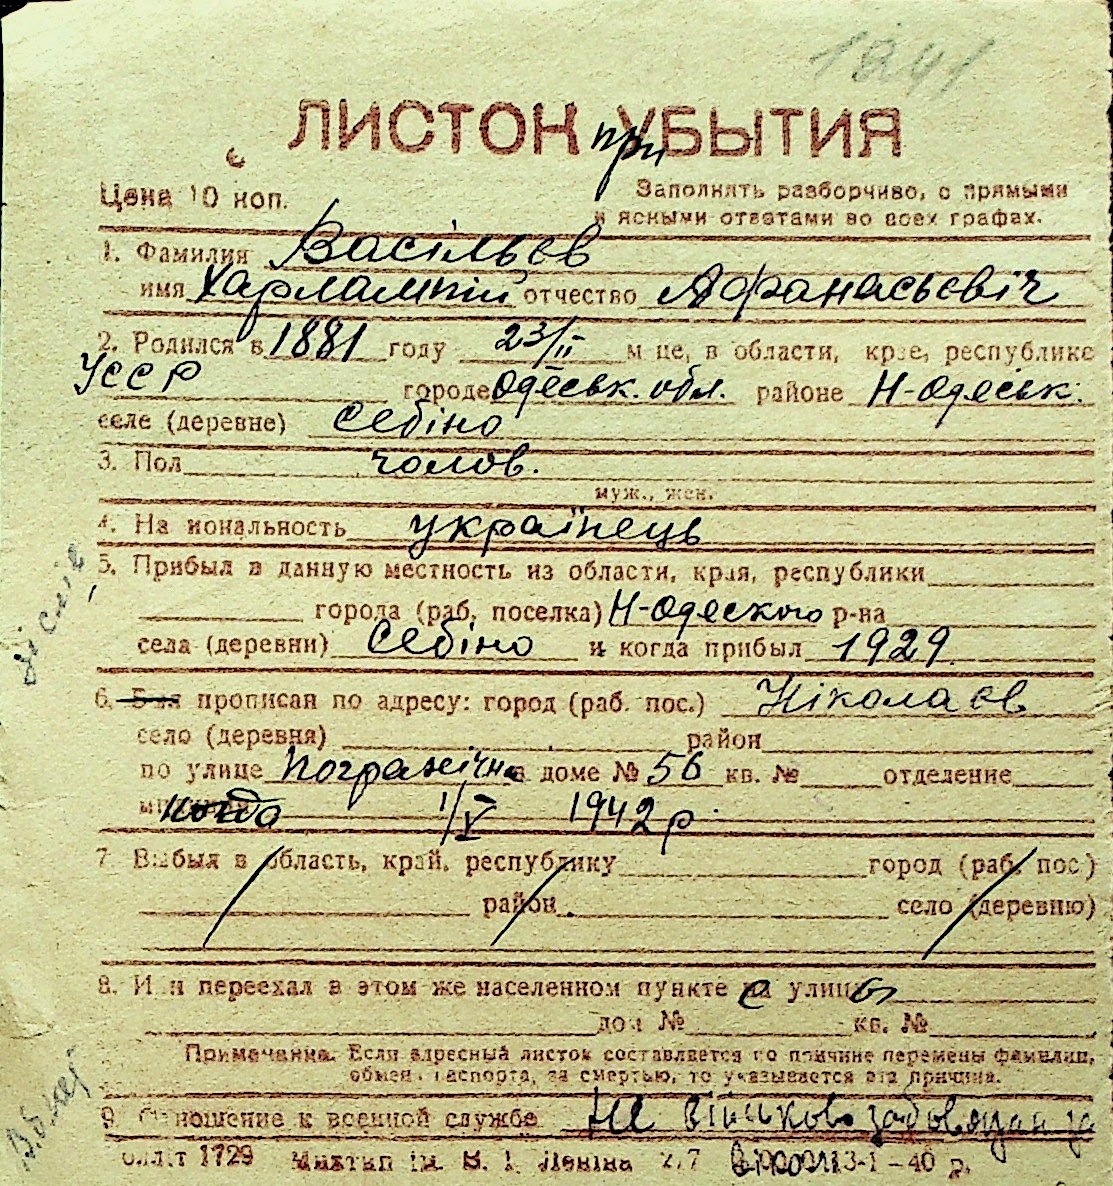 1241
ЛИСТОК при УБЫТИЯ
Цена 10 коп.
Заполнять разборчиво, с прямыми
и ясными ответами во всех графах.
1. Фамилия Васільєв
имя Харлампій отчество Афанасьевіч
2. Родился в 1881 году 23/II м це, в области, крае, республике
УССР городе Одеськ. обл. районе Н-Одеськ.
селе (деревне) Себіно
3. Пол чолов.
муж., жен.
4. На иональность українець
5. Прибыл в данную местность из области, края, республики
города (раб. поселка) Н-Одеского р-на
села (деревни) Себіно и когда прибыл 1929
6. Был прописан по адресу: город (раб. пос.) Ніколаєв
село (деревня) район
по улице Погранічна в доме № 56 кв. № отделение
когда 1/V 1942 р.
7. Выбыл в область, край, республику город (раб. пос.)
район село (деревню)
8. И и переехал в этом же населенном пункте с улицы
дом № кв. №
Примечание. Если адресный листок составляется по причине перемены фамилии,
обмен паспорта, за смертью, то указывается эта причина.
9. Отношение к военной службе Не військовозабовязан
1729 им. В. І. Леніна 13-1-40 р.